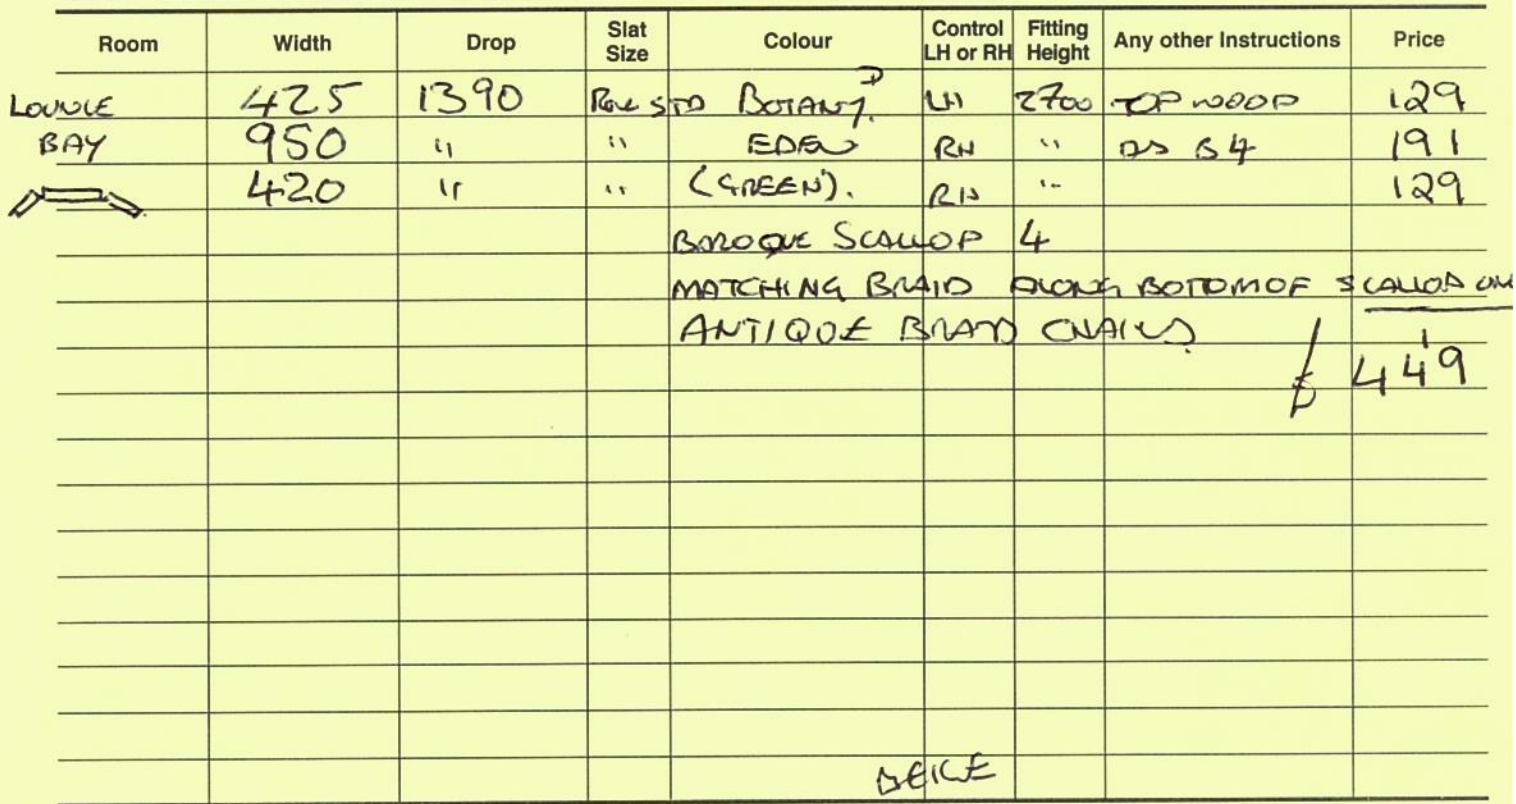 Room Width Drop Slat Size Colour Control LH or RH Fitting Height Any other Instructions Price
LOUNGE 425 1390 STD BOTANY. LH 2700 TOP WOOD 129
BAY 950 " " EDEN RH " AS B4 191
420 " " (GREEN). RH " 129
BAROQUE SCALLOP 4
MATCHING BRAID ALONG BOTTOM OF SCALLOP
ANTIQUE BRASS CHAINS
449
BEIGE